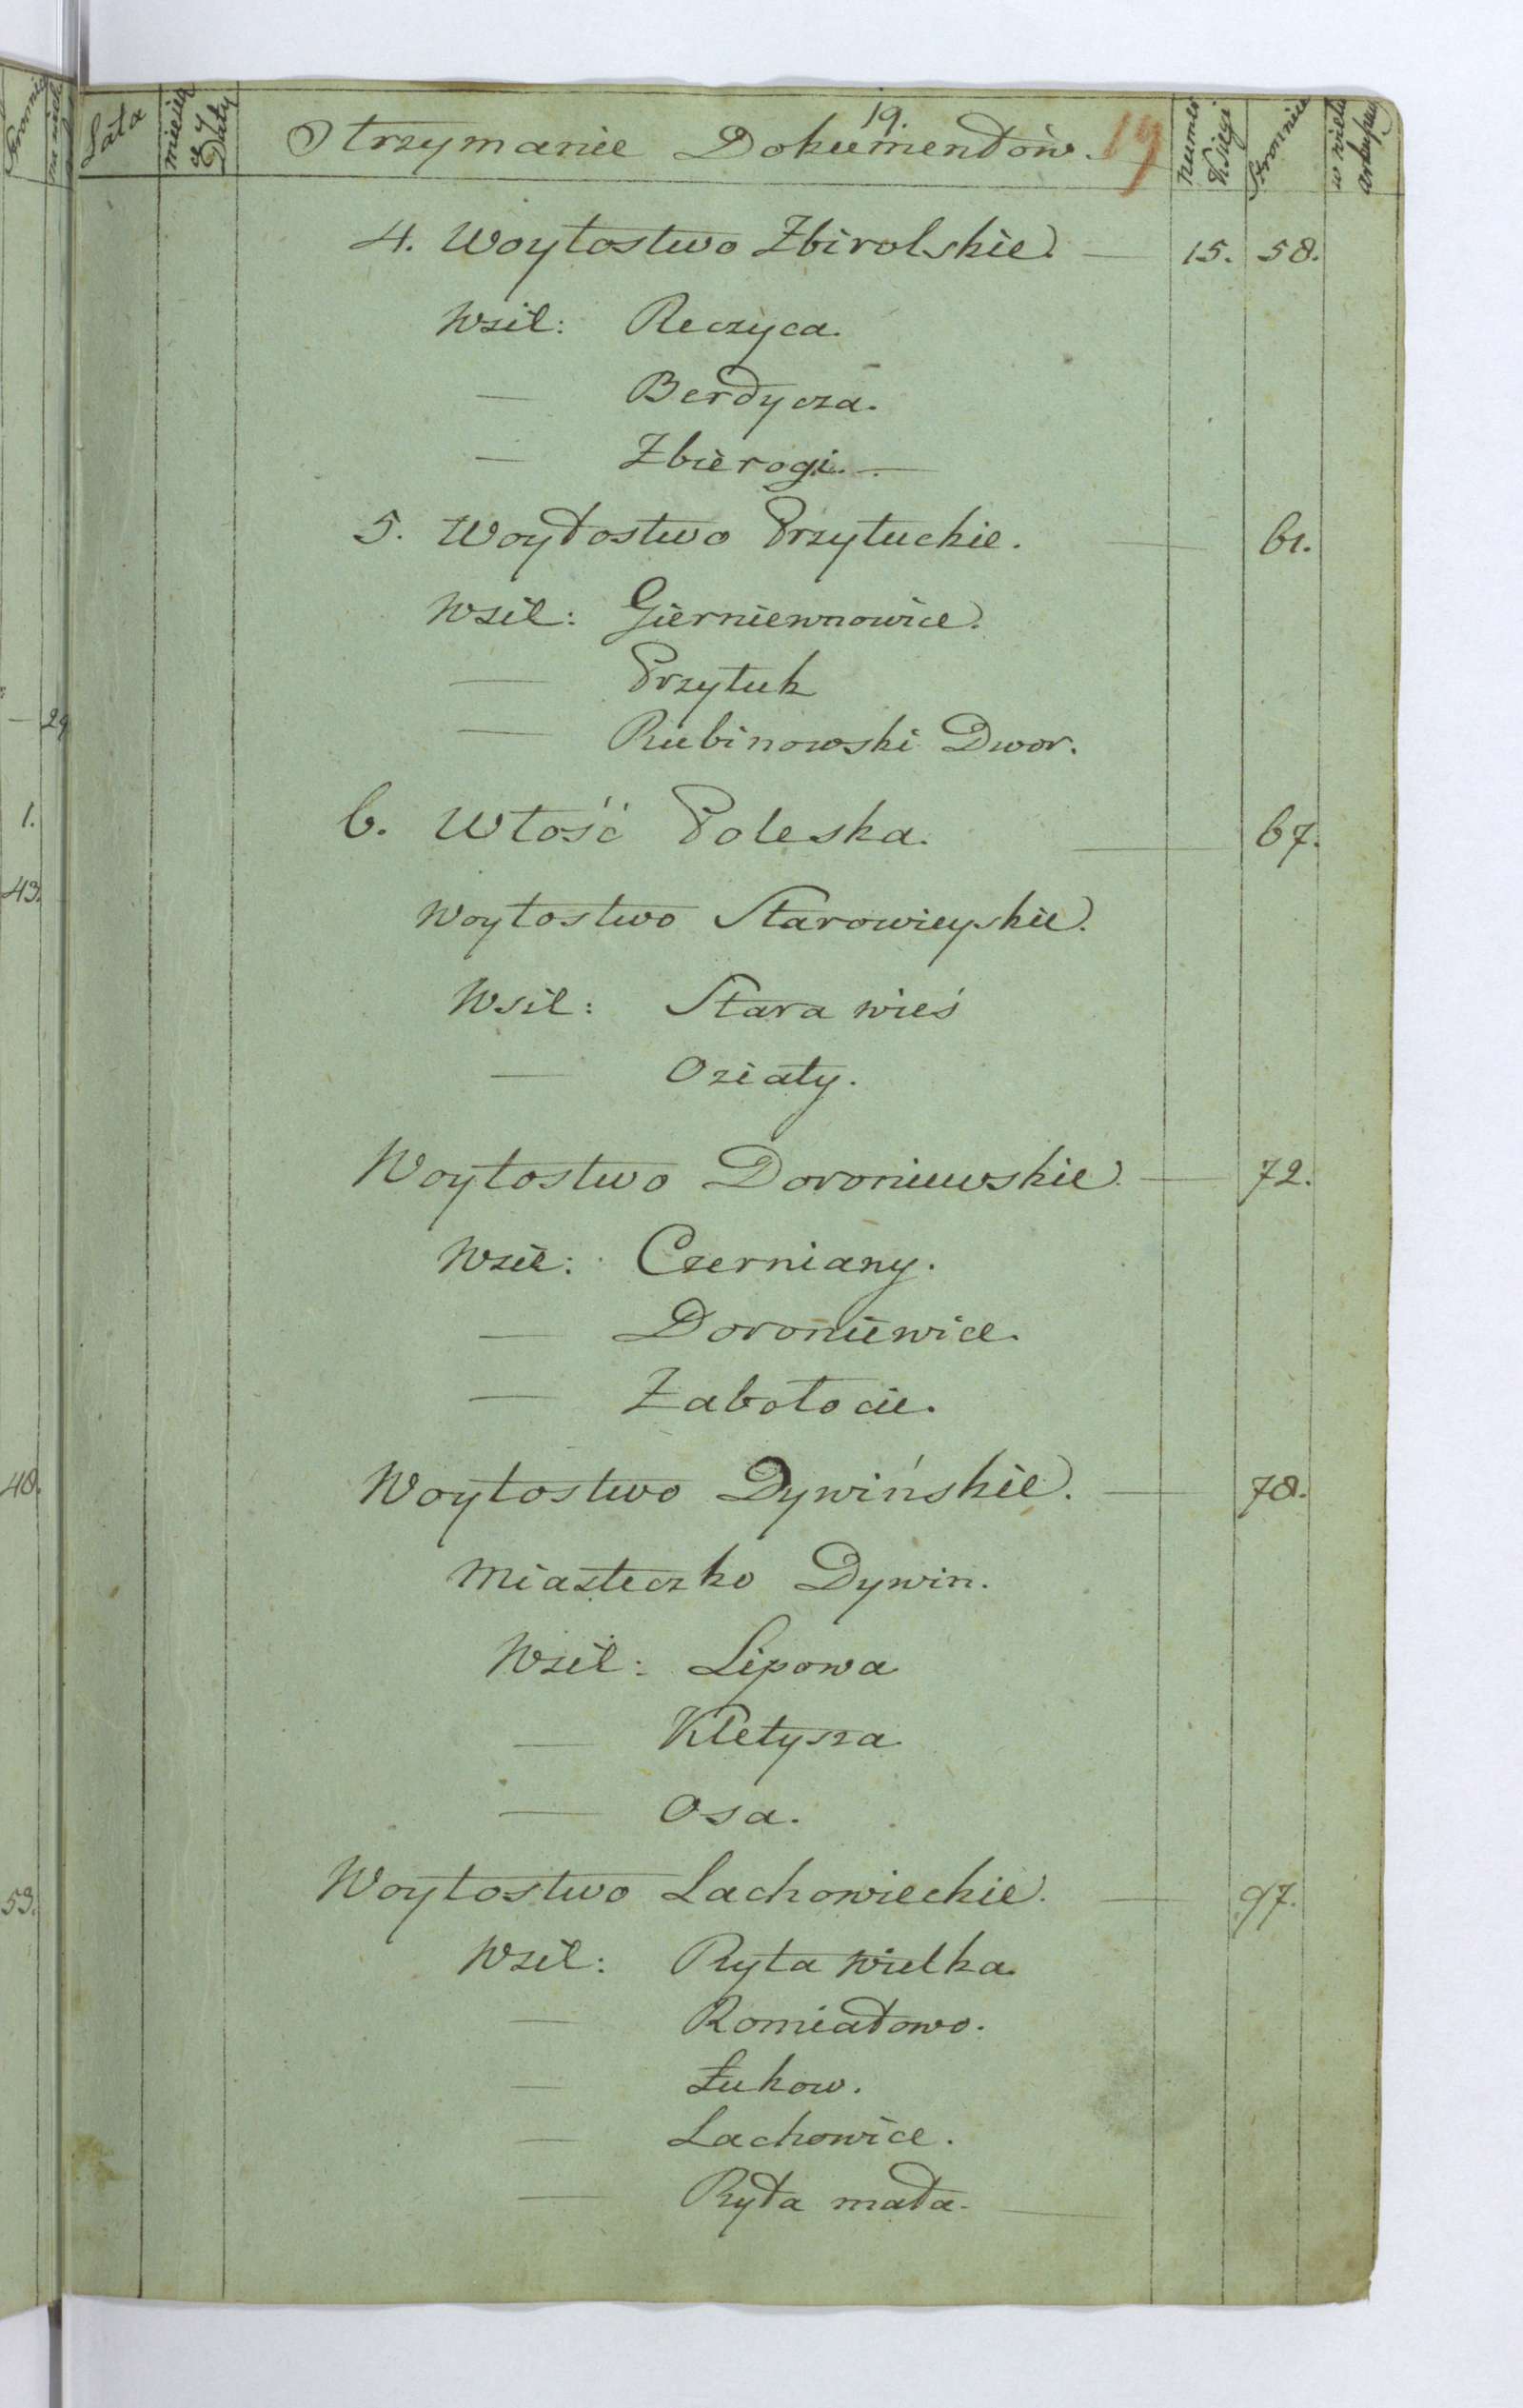 19.
Lata
miesiące y Daty
Otrzymanie Dokumentów. 19
numer Księgi
Stronnica
w wielu arkuszu
4. Woytostwo Zbirolskie. — 15. 58.
Wsie: Reczyca.
— Berdycza.
— Zbierogi. —
5. Woytostwo Przyłuckie. — 61.
Wsie: Gierniewnowice.
— Przyłuk
— Rubinowski Dwor.
6. Włość Poleska. — 67.
Woytostwo Starowieyskie.
Wsie: Stara wieś
— Oziaty.
Woytostwo Doroniewskie — 72.
Wsie: Czerniany.
— Doroniewice.
— Zabołocie.
Woytostwo Dywińskie. — 78.
Miasteczko Dywin.
Wsie: Lipowa
— Kletysza
— Osa.
Woytostwo Lachowieckie. — 97.
Wsie: Ryta wielka
— Romiatowo.
— Łukow.
— Lachowice.
— Ryta mała. —
29
1.
43.
48.
53.